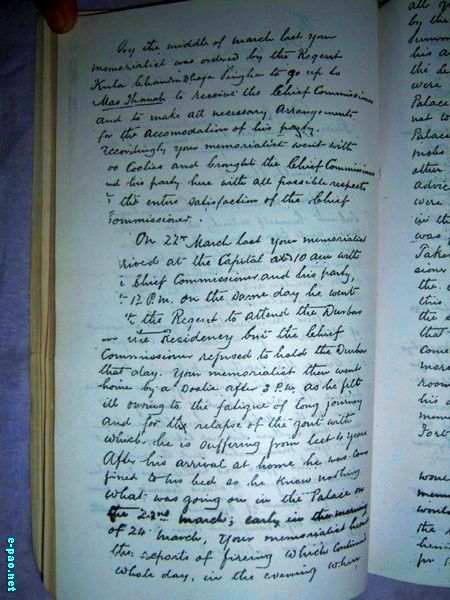 By the middle of March last your
memorialist was ordered by the Regent
Kula Chandradhaja Singha to go up to
Mao Thanah to receive the Chief Commissioner
and to make all necessary Arrangements
for the Accomodation of his party.
Accordingly your memorialist went with
00 Coolies and brought the Chief Commissioner
nd his party here with all possible respects
the entire satisfaction of the Chief
Commissioner.
On 22nd March last your memorialist
rived at the Capital at 10 am with
Chief Commissioner and his party,
12 P.M. on the same day he went
the Regent to attend the Durbar
the Residency but the Chief
Commissioner refused to hold the Durbar
that day. Your memorialist then went
home by a Doolie after 3 P.M. as he felt
ill owing to the fatigue of long journey
and for the relapse of the gout with
which he is suffering from last 4 years
After his arrival at home he was con
fined to his bed so he knows nothing
what was going on in the Palace on
the 23rd March; early in the morning
of 24 March, your memorialist heard
the reports of fireing which continued
whole day, in the evening when
all
by the
his a
the de
were
Palace
not to
Palace
make
other
advic
were
in th
was
Taken
sione
the
this
the
that
come
more
room
his
mem
Fort
woul
mem
woul
the
e-pao.net